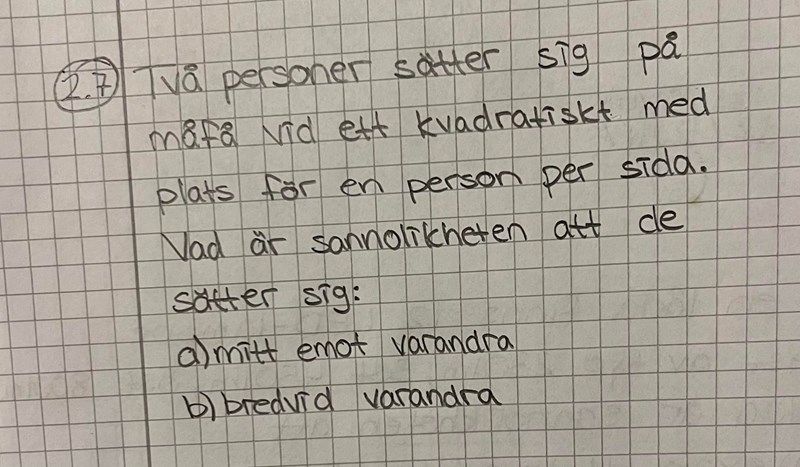 2.7) Två personer sätter sig på
måfå vid ett kvadratiskt med
plats för en person per sida.
Vad är sannolikheten att de
sätter sig:
a) mitt emot varandra
b) bredvid varandra